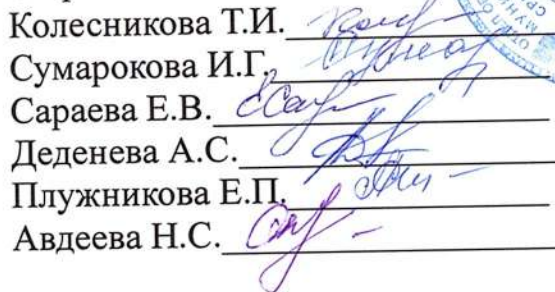 Колесникова Т.И.
Сумарокова И.Г.
Сараева Е.В.
Деденева А.С.
Плужникова Е.П.
Авдеева Н.С.